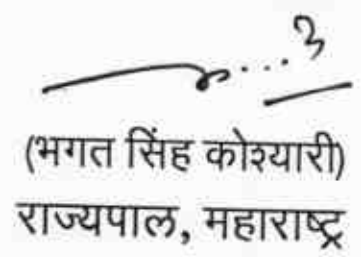 ...3
(भगत सिंह कोश्यारी)
राज्यपाल, महाराष्ट्र